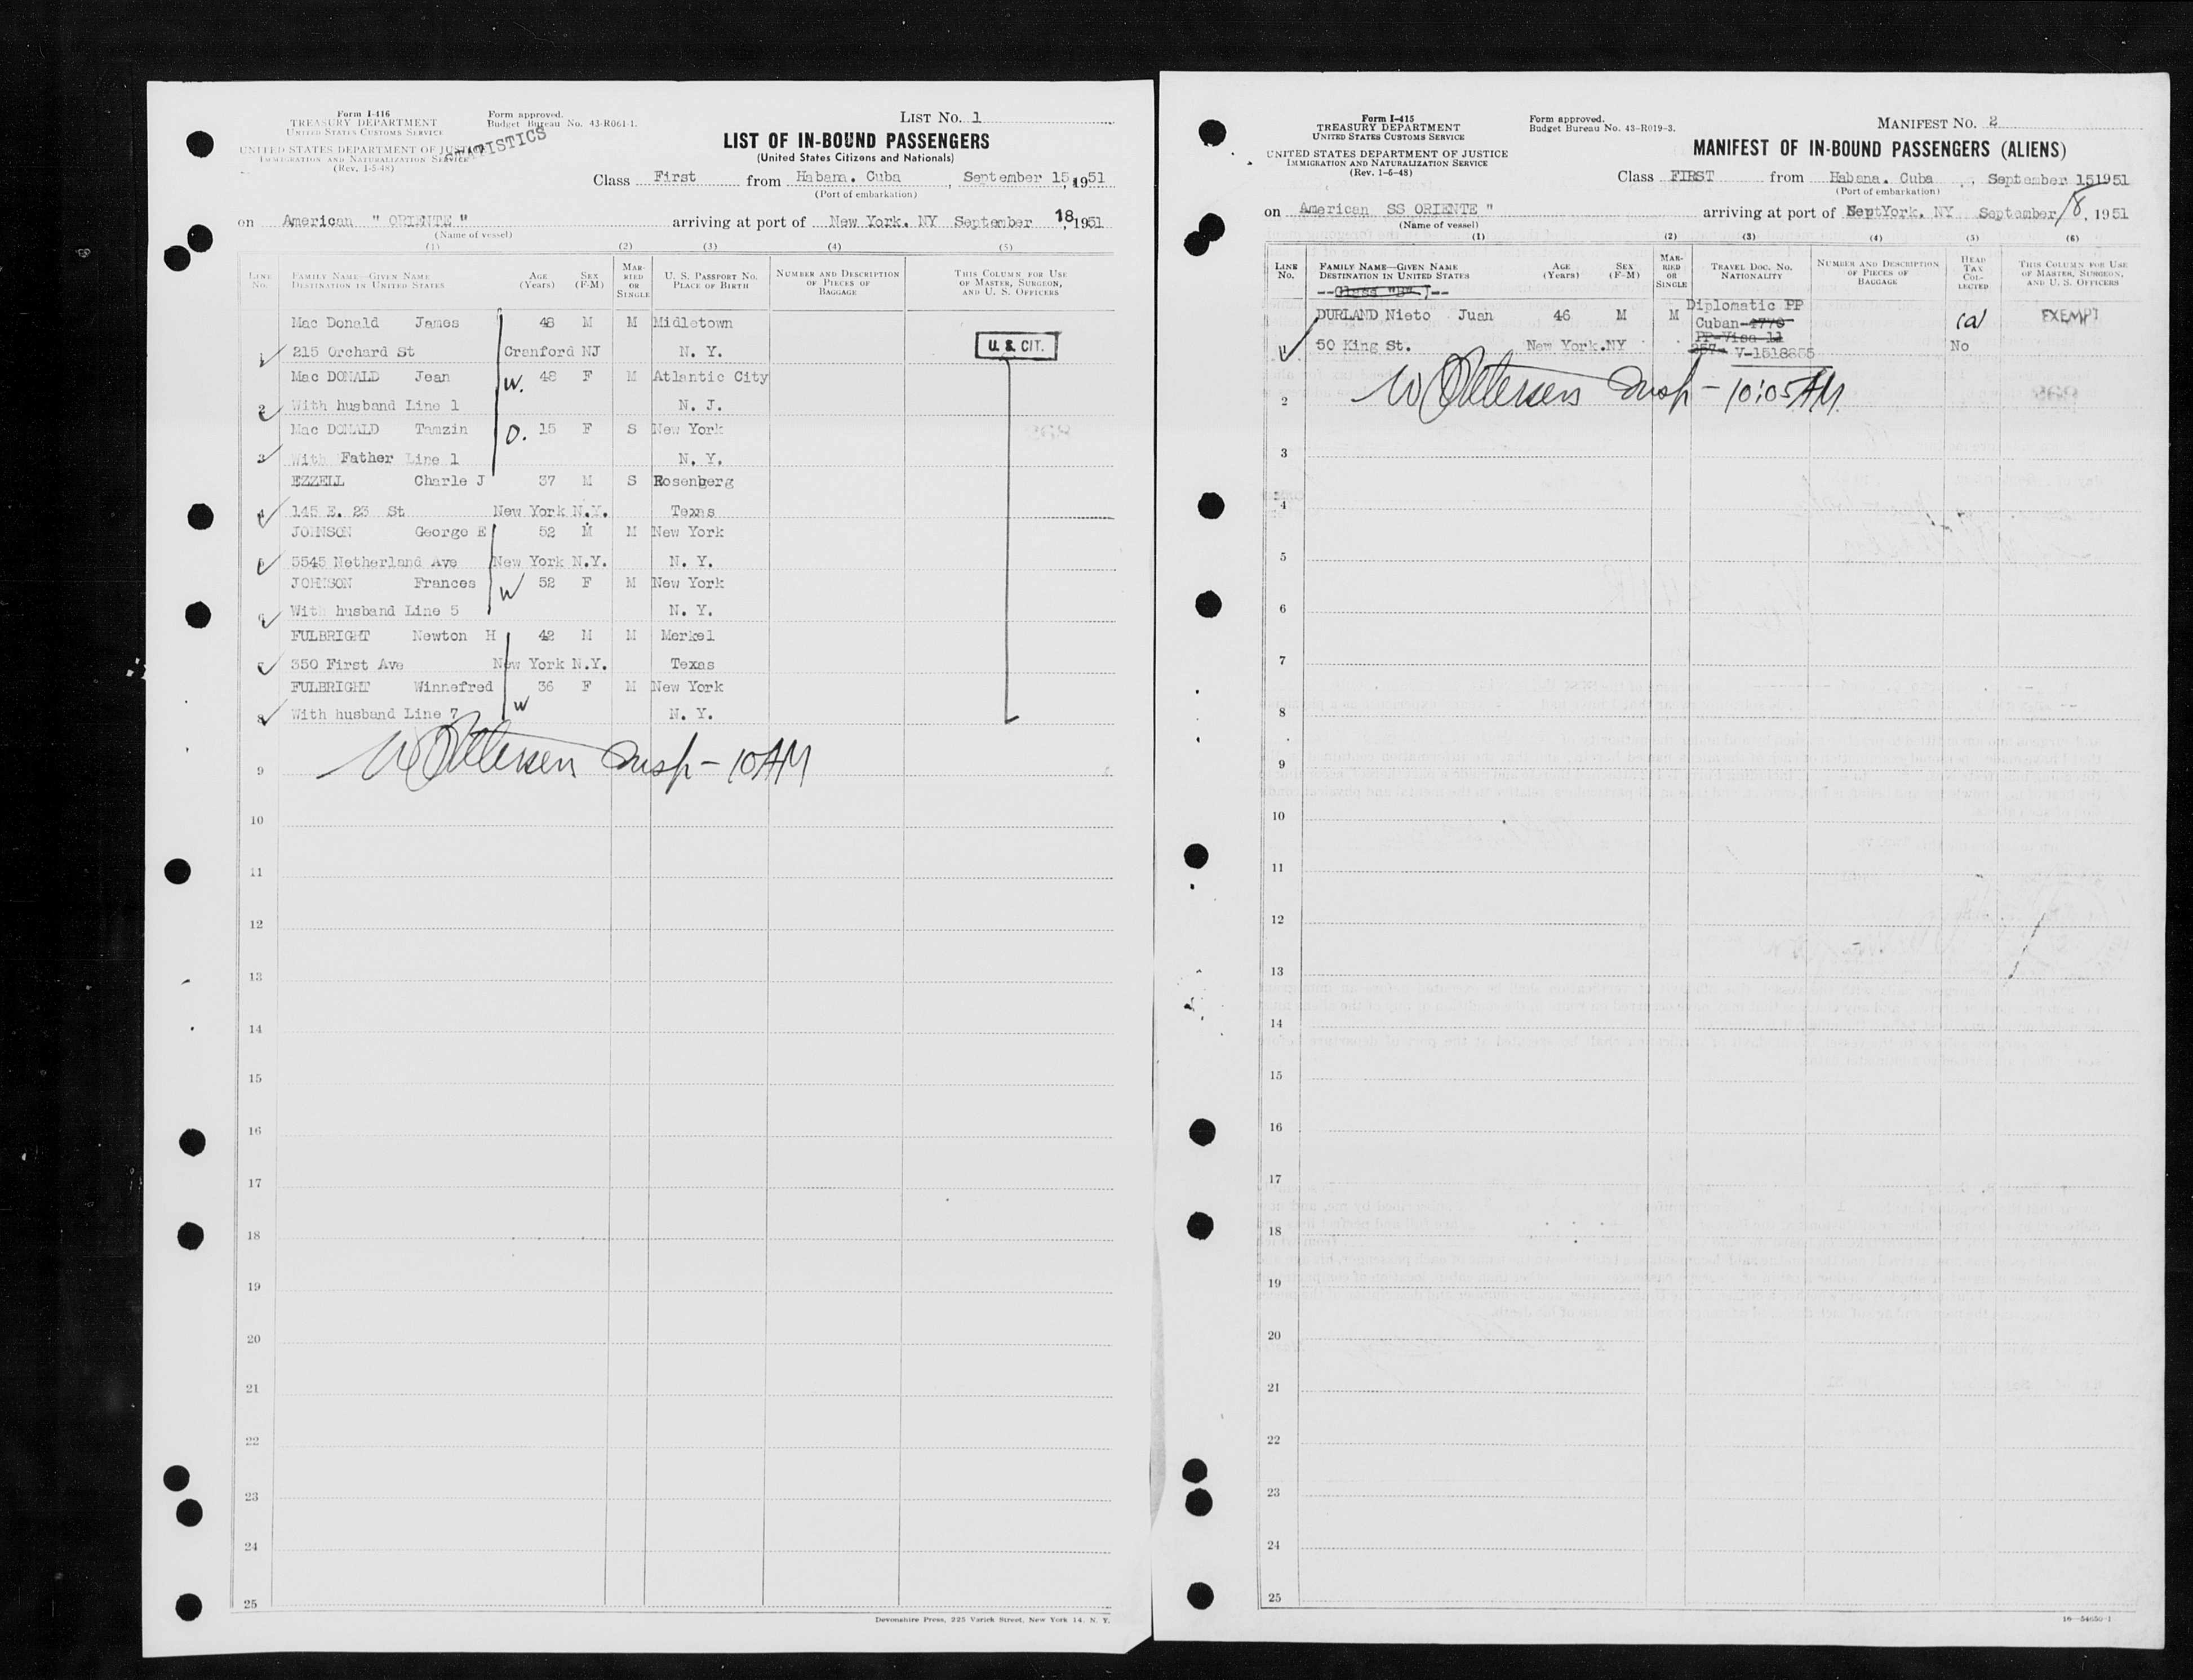 Form I-416
TREASURY DEPARTMENT
UNITED STATES CUSTOMS SERVICE
UNITED STATES DEPARTMENT OF JUSTICE
IMMIGRATION AND NATURALIZATION SERVICE
(Rev. 1-5-48)
Form approved.
Budget Bureau No. 43-R061-1.
STATISTICS
LIST NO. 1
LIST OF IN-BOUND PASSENGERS
(United States Citizens and Nationals)
Class First from Habana. Cuba, September 15, 1951
(Port of embarkation)
on American " ORIENTE " arriving at port of New York. NY September 18, 1951
(Name of vessel)
(1) (2) (3) (4) (5)
LINE NO. FAMILY NAME—GIVEN NAME DESTINATION IN UNITED STATES AGE (Years) SEX (F-M) MARRIED OR SINGLE U. S. PASSPORT NO. PLACE OF BIRTH NUMBER AND DESCRIPTION OF PIECES OF BAGGAGE THIS COLUMN FOR USE OF MASTER, SURGEON, AND U. S. OFFICERS
Mac Donald James 48 M M Midletown
1 215 Orchard St Cranford NJ N. Y. U. S. CIT.
Mac DONALD Jean W. 48 F M Atlantic City
2 With husband Line 1 N. J.
Mac DONALD Tamzin D. 15 F S New York
3 With Father Line 1 N. Y.
EZZELL Charle J 37 M S Rosenberg
4 145 E. 23 St New York N.Y. Texas
JOHNSON George E 52 M M New York
5 5545 Netherland Ave New York N.Y. N. Y.
JOHNSON Frances W 52 F M New York
6 With husband Line 5 N. Y.
FULBRIGHT Newton H 42 M M Merkel
7 350 First Ave New York N.Y. Texas
FULBRIGHT Winnefred 36 F M New York
8 With husband Line 7 W N. Y.
Petersen Insp - 10 AM
9
10
11
12
13
14
15
16
17
18
19
20
21
22
23
24
25
Devonshire Press, 225 Varick Street, New York 14, N. Y.
Form I-415
TREASURY DEPARTMENT
UNITED STATES CUSTOMS SERVICE
UNITED STATES DEPARTMENT OF JUSTICE
IMMIGRATION AND NATURALIZATION SERVICE
(Rev. 1-6-48)
Form approved.
Budget Bureau No. 43-R019-3.
MANIFEST NO. 2
MANIFEST OF IN-BOUND PASSENGERS (ALIENS)
Class FIRST from Habana. Cuba, September 15 1951
(Port of embarkation)
on American SS ORIENTE " arriving at port of York. NY September 18, 1951
(Name of vessel)
(1) (2) (3) (4) (5) (6)
LINE NO. FAMILY NAME—GIVEN NAME DESTINATION IN UNITED STATES AGE (Years) SEX (F-M) MARRIED OR SINGLE TRAVEL DOC. NO. NATIONALITY NUMBER AND DESCRIPTION OF PIECES OF BAGGAGE HEAD TAX COLLECTED THIS COLUMN FOR USE OF MASTER, SURGEON, AND U. S. OFFICERS
--Class "B" --
Diplomatic PP
DURLAND Nieto Juan 46 M M Cuban (a) EXEMPT
PP-Visa
1 50 King St. New York.NY V-1518655 No
Petersen Insp - 10:05 AM
2
3
4
5
6
7
8
9
10
11
12
13
14
15
16
17
18
19
20
21
22
23
24
25